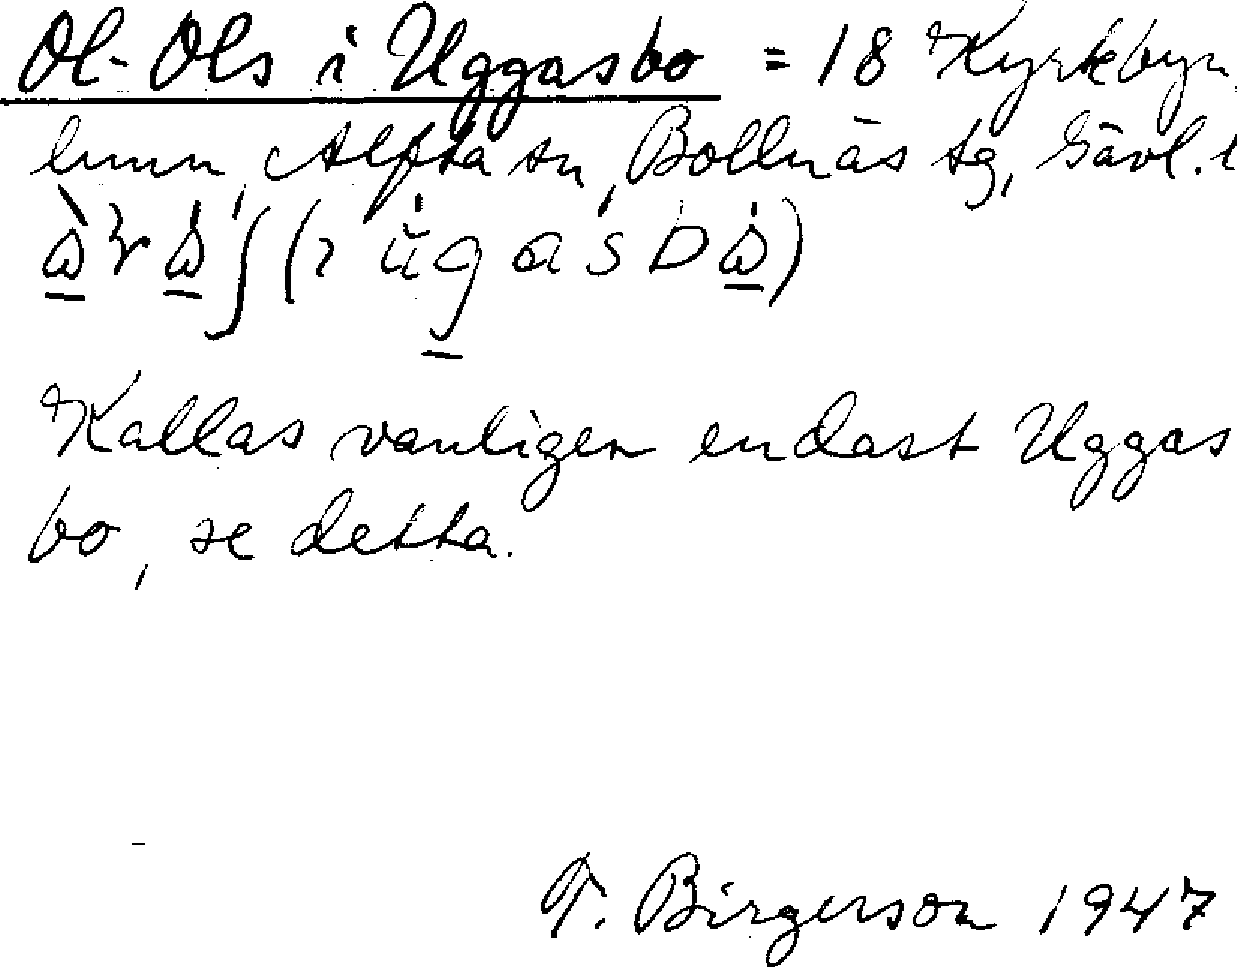 Ol-Ols i Uggasbo = 18 Kyrkbyn
Alfta sn, Bollnäs tg, Gävl. l
Kallas vanligen endast Uggas
bo, se detta.
T. Birgerson 1947